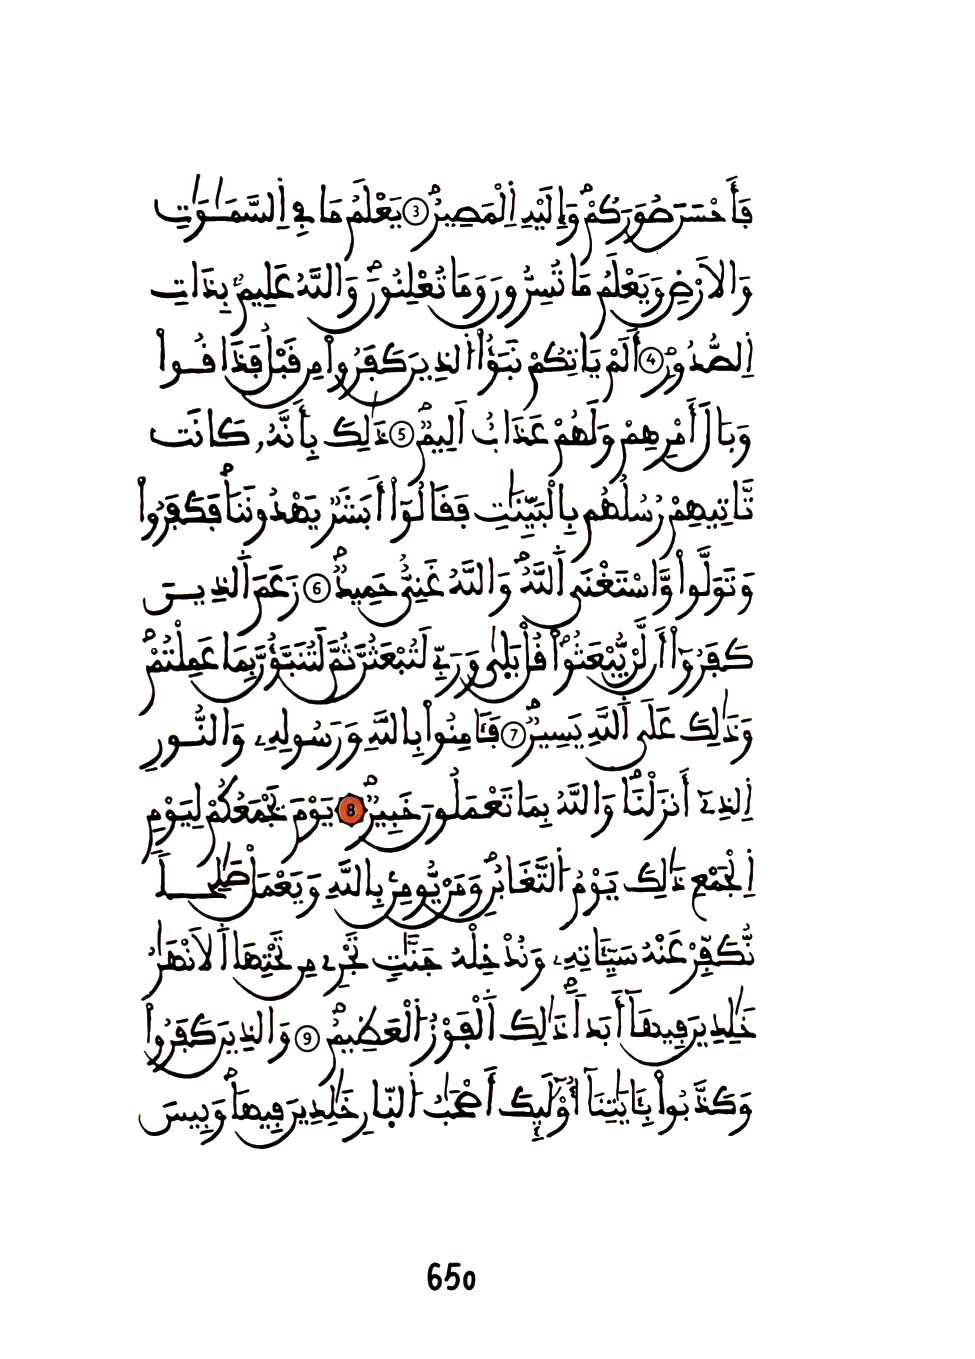 فَأَحْسَنَ صُوَرَكُمْ وَإِلَيْهِ اِلْمَصِيرُ 3 يَعْلَمُ مَا فِے اِلسَّمَٰوَٰتِ
وَالَارْضِ وَيَعْلَمُ مَا تُسِرُّونَ وَمَا تُعْلِنُونَ وَاللَّهُ عَلِيمٌ بِذَاتِ
اِلصُّدُورِ 4 أَلَمْ يَاتِكُمْ نَبَؤُاْ اُلذِينَ كَفَرُواْ مِن قَبْلُ فَذَاقُواْ
وَبَالَ أَمْرِهِمْ وَلَهُمْ عَذَابٌ اَلِيمٌ 5 ذَٰلِكَ بِأَنَّهُۥ كَانَت
تَّاتِيهِمْ رُسُلُهُم بِالْبَيِّنَٰتِ فَقَالُوٓاْ أَبَشَرٌ يَهْدُونَنَا فَكَفَرُواْ
وَتَوَلَّواْ وَّاسْتَغْنَى اَللَّهُ وَاللَّهُ غَنِيٌّ حَمِيدٌ 6 زَعَمَ اَلذِينَ
كَفَرُوٓاْ أَن لَّنْ يُّبْعَثُواْ قُلْ بَلَىٰ وَرَبِّے لَتُبْعَثُنَّ ثُمَّ لَتُنَبَّؤُنَّ بِمَا عَمِلْتُمْ
وَذَٰلِكَ عَلَى اَللَّهِ يَسِيرٌ 7 فَـَٔامِنُواْ بِاللَّهِ وَرَسُولِهِۦ وَالنُّورِ
اِلذِےٓ أَنزَلْنَا وَاللَّهُ بِمَا تَعْمَلُونَ خَبِيرٌ 8 يَوْمَ يَجْمَعُكُمْ لِيَوْمِ
اِلْجَمْعِ ذَٰلِكَ يَوْمُ اُلتَّغَابُنِ وَمَنْ يُّومِنۢ بِاللَّهِ وَيَعْمَلْ صَٰلِحاً
نُّكَفِّرْ عَنْهُ سَيِّـَٔاتِهِۦ وَنُدْخِلْهُ جَنَّٰتٍ تَجْرِے مِن تَحْتِهَا اَلَانْهَٰرُ
خَٰلِدِينَ فِيهَآ أَبَداً ذَٰلِكَ اَلْفَوْزُ اُلْعَظِيمُ 9 وَالذِينَ كَفَرُواْ
وَكَذَّبُواْ بِـَٔايَٰتِنَآ أُوْلَٰٓئِكَ أَصْحَٰبُ اُلنّ۪ارِ خَٰلِدِينَ فِيهَا وَبِيسَ
650